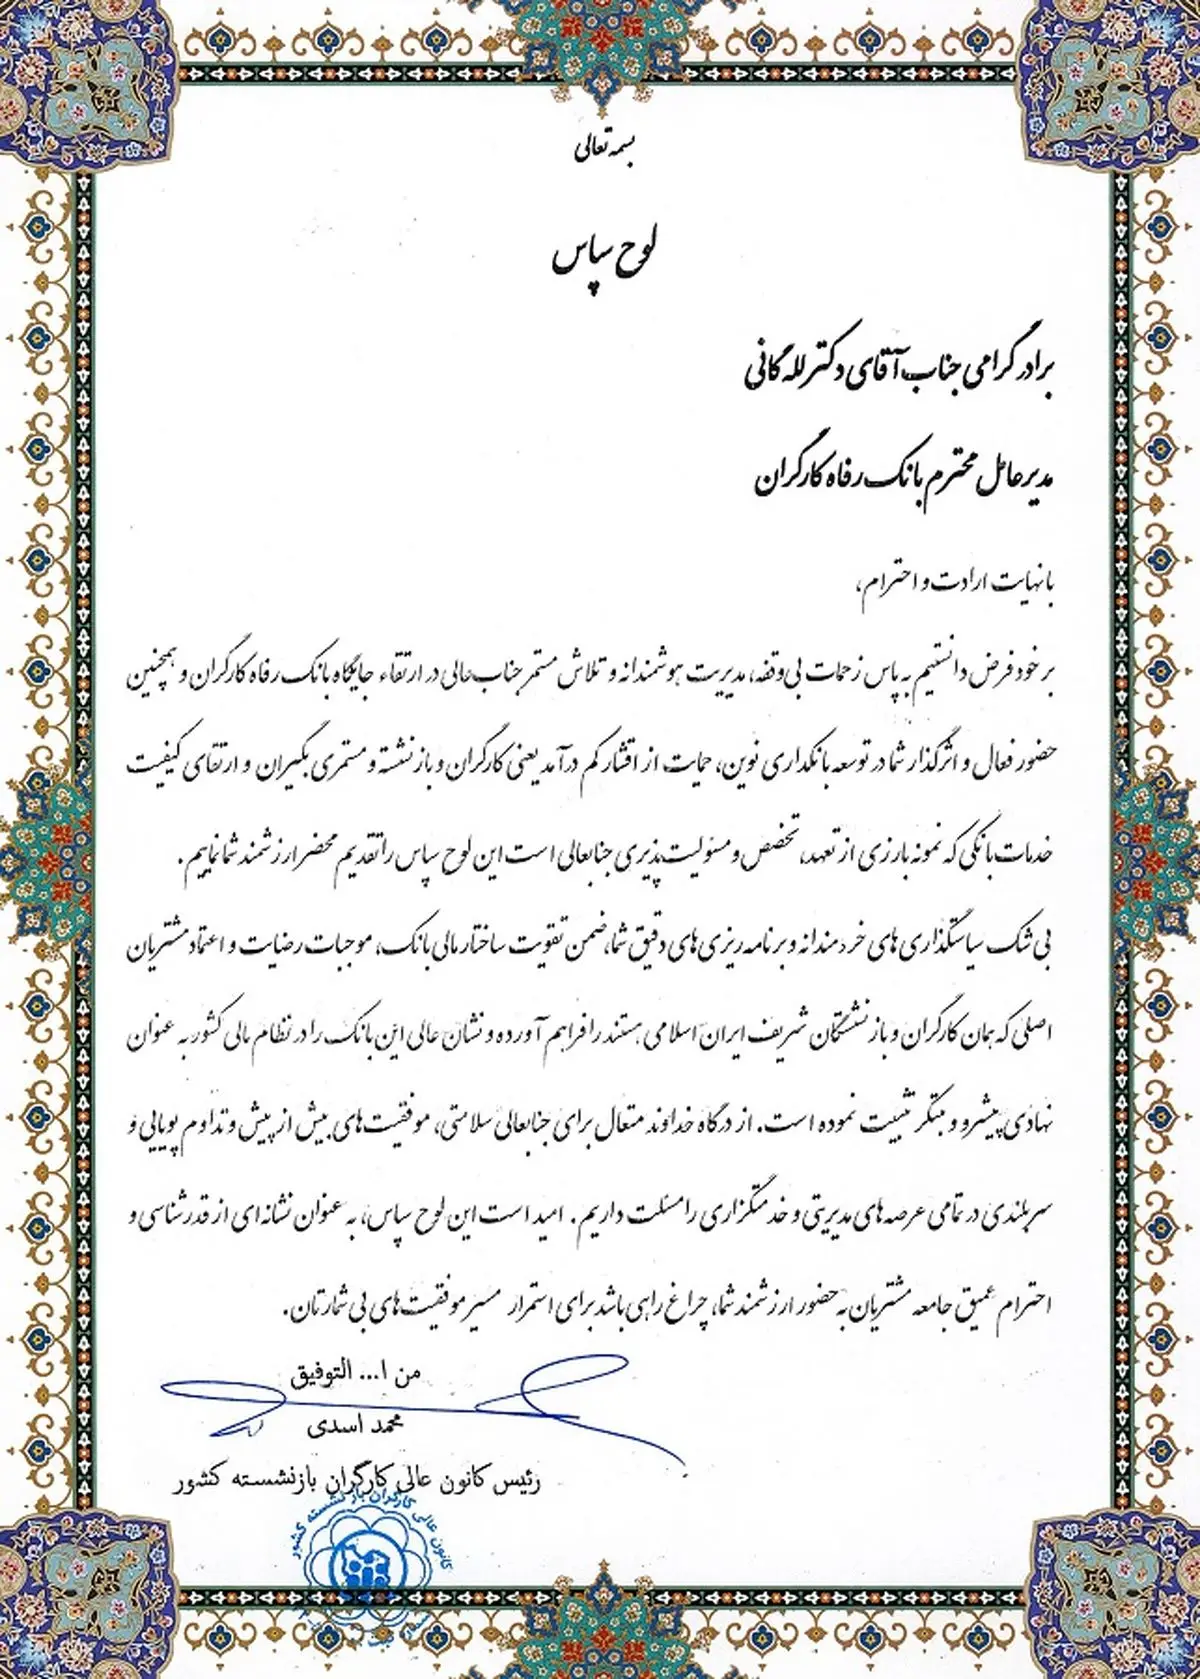 بسمه تعالی
لوح سپاس
برادر گرامی جناب آقای دکتر لله گانی
مدیرعامل محترم بانک رفاه کارگران
با نهایت ارادت و احترام،
بر خود فرض دانستیم به پاس زحمات بی وقفه، مدیریت هوشمندانه و تلاش مستمر جناب عالی در ارتقاء جایگاه بانک رفاه کارگران و همچنین
حضور فعال و اثرگذار شما در توسعه بانکداری نوین، حمایت از اقشار کم درآمد یعنی کارگران و بازنشسته و مستمری بگیران و ارتقای کیفیت
خدمات بانکی که نمونه بارزی از تعهد، تخصص و مسئولیت پذیری جنابعالی است این لوح سپاس را تقدیم محضر ارزشمند شما نماییم.
بی شک سیاستگذاری های خردمندانه و برنامه ریزی های دقیق شما، ضمن تقویت ساختار مالی بانک، موجبات رضایت و اعتماد مشتریان
اصلی که همان کارگران و بازنشستگان شریف ایران اسلامی هستند را فراهم آورده و نشان عالی این بانک را در نظام مالی کشور به عنوان
نهادی پیشرو و مبتکر تثبیت نموده است. از درگاه خداوند متعال برای جنابعالی سلامتی، موفقیت های بیش از پیش و تداوم پویایی و
سربلندی در تمامی عرصه های مدیریتی و خدمتگزاری را مسئلت داریم. امید است این لوح سپاس، به عنوان نشانه ای از قدرشناسی و
احترام عمیق جامعه مشتریان به حضور ارزشمند شما، چراغ راهی باشد برای استمرار مسیر موفقیت های بی شمارتان.
من ا... التوفیق
محمد اسدی
رئیس کانون عالی کارگران بازنشسته کشور
کانون عالی کارگران بازنشسته کشور